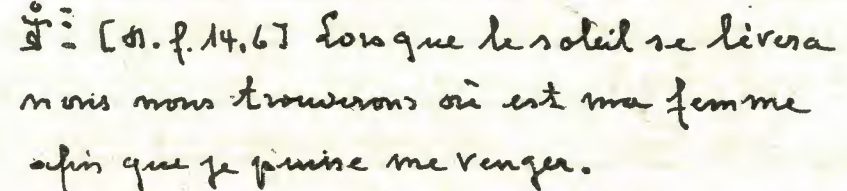 [N. f. 14,6] Lorsque le soleil se lèvera
nous nous trouverons où est ma femme
afin que je puise me venger.